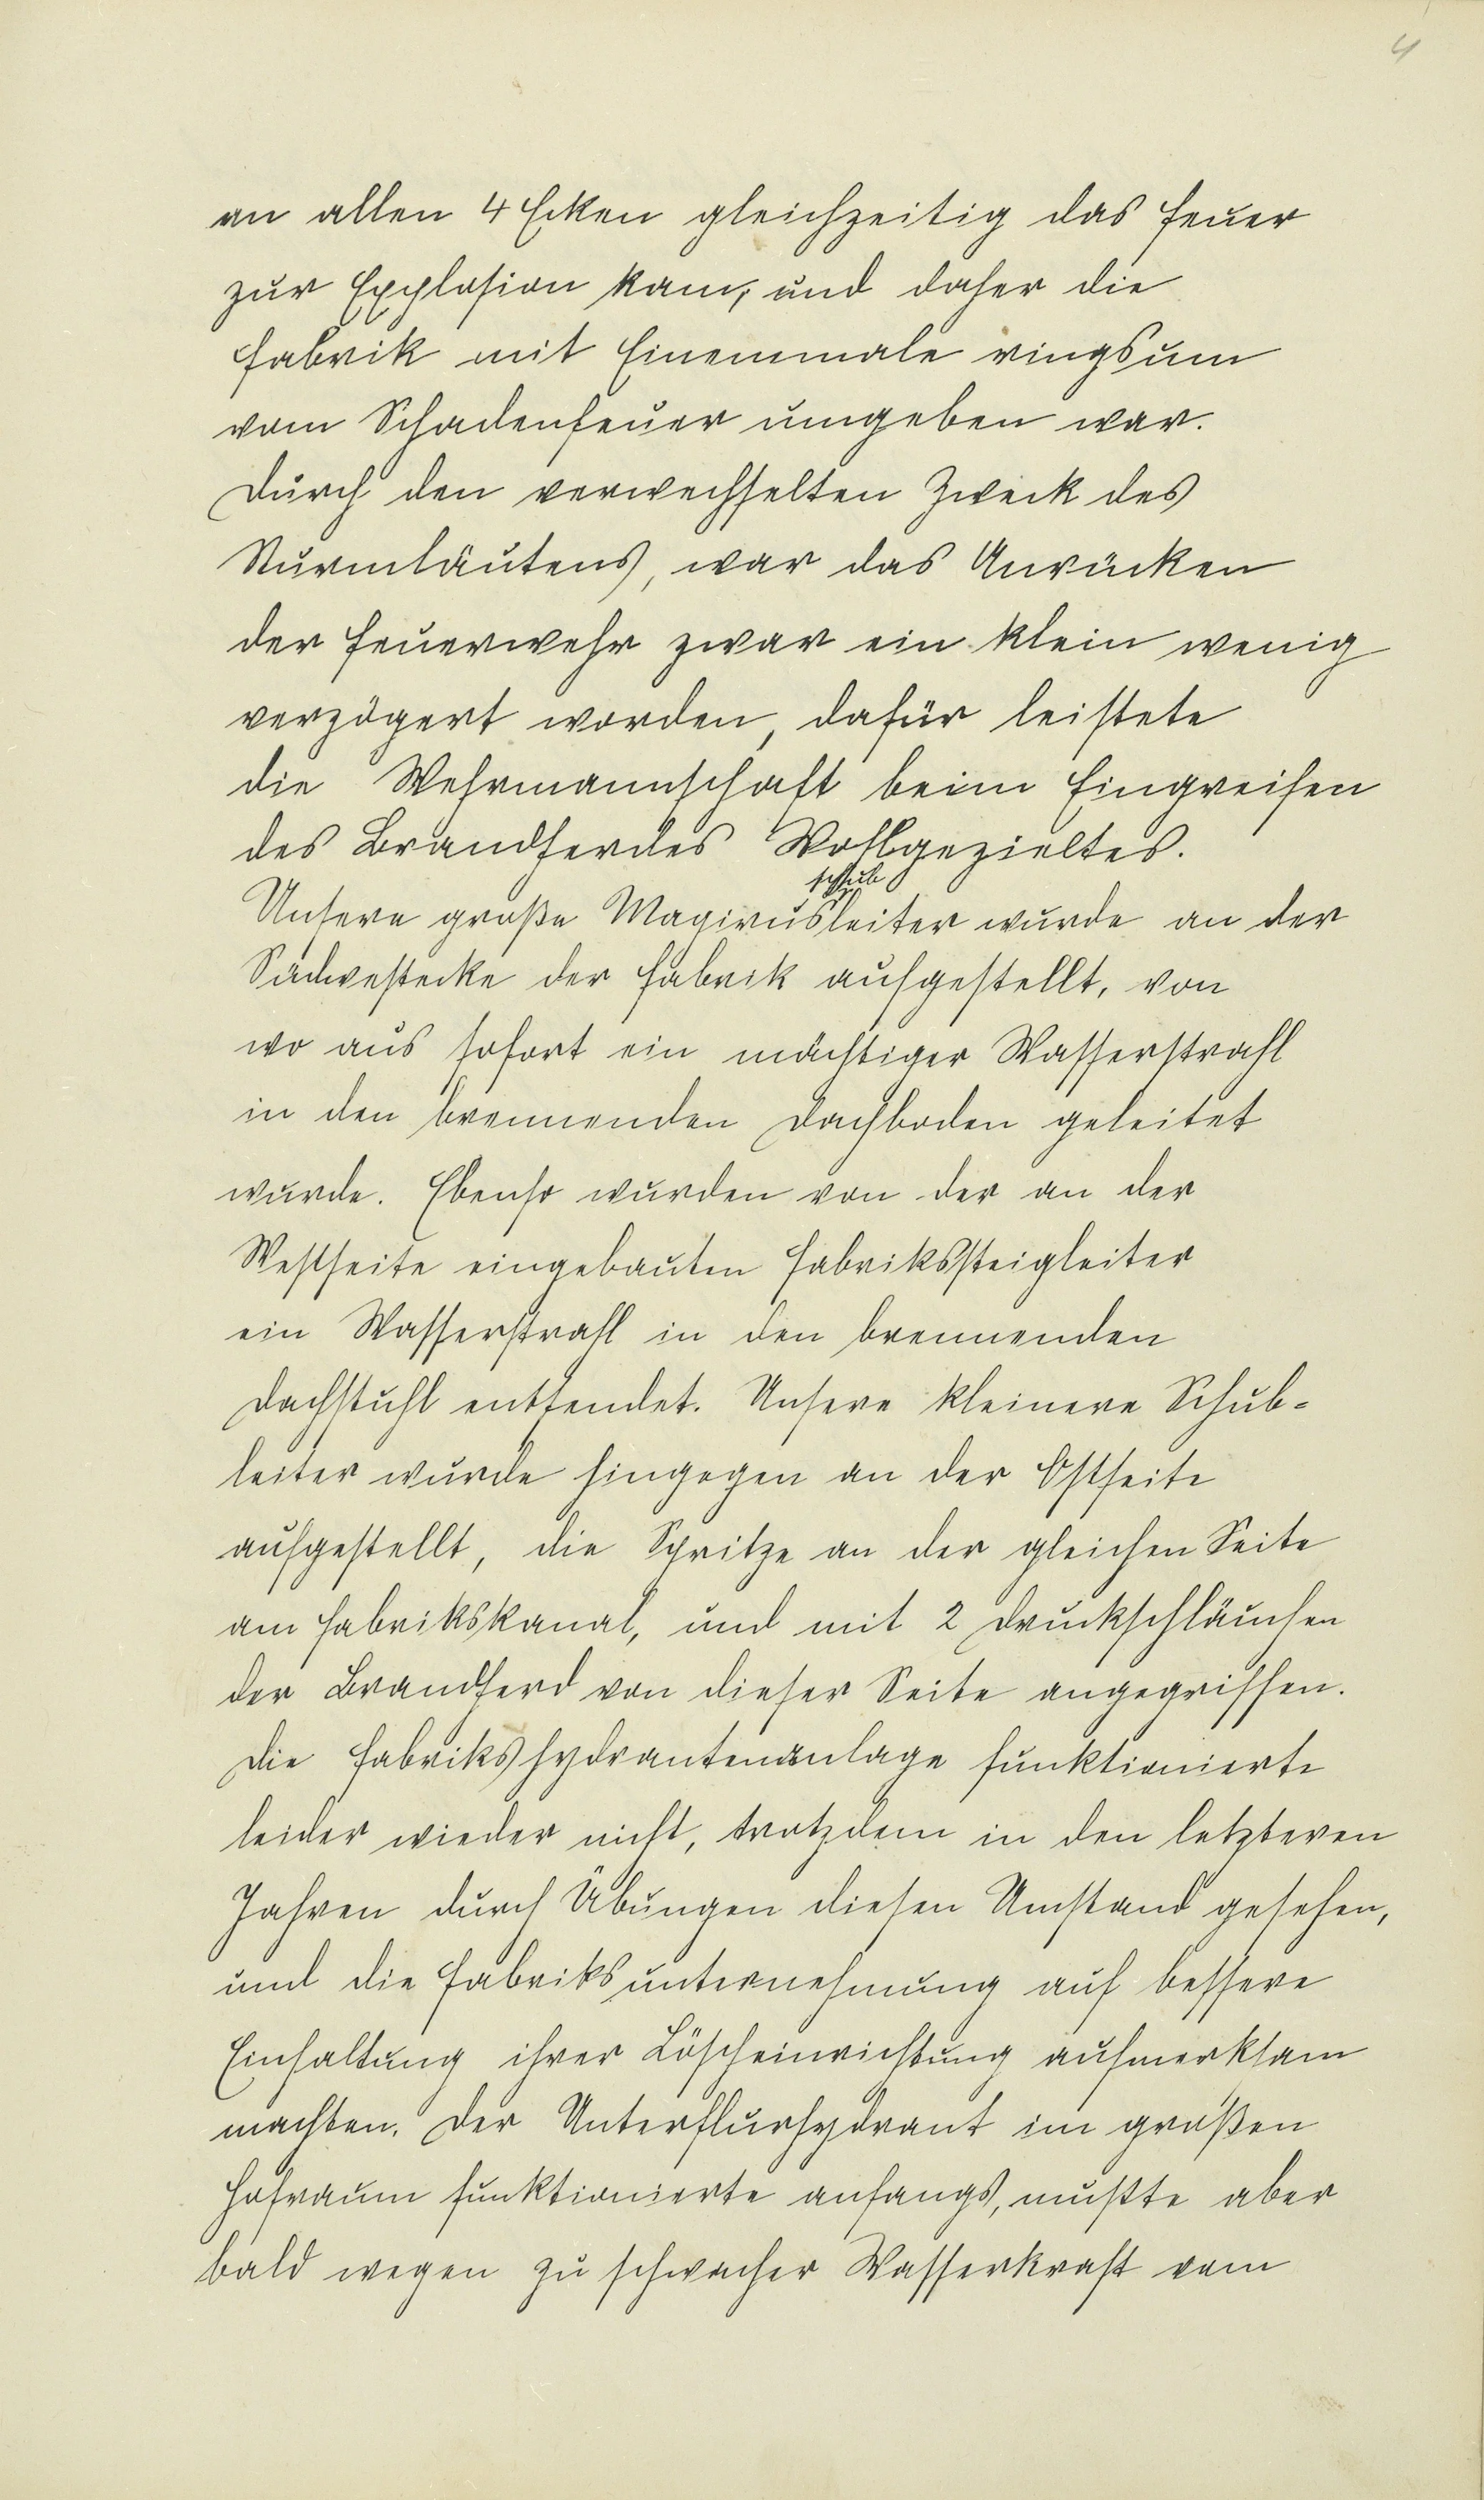 4
an allen 4 Ecken gleichzeitig das Feuer
zur Explosion kam, und daher die
Fabrik mit Einemmale ringsum
vom Schadenfeuer umgeben war.
Durch den verwechselten Zweck des
Sturmläutens, war das Anrücken
der Feuerwehr zwar ein klein wenig
verzögert worden, dafür leistete
die Wehrmannschaft beim Eingreifen
des Brandherdes Wohlgezieltes.
schub
Unsere große Magirusleiter wurde an der
Südwestecke der Fabrik aufgestellt, von
wo aus sofort ein mächtiger Wasserstrahl
in den brennenden Dachboden geleitet
wurde. Ebenso wurden von der an der
Westseite eingebauten Fabrikssteigleiter
ein Wasserstrahl in den brennenden
Dachstuhl entsendet. Unsere kleinere Schub-
leiter wurde hingegen an der Ostseite
aufgestellt, die Spritze an der gleichen Seite
am Fabrikskanal, und mit 2 Druckschläuchen
der Brandherd von dieser Seite angegriffen.
Die Fabrikshydrantenanlage funktionierte
leider wieder nicht, trotzdem in den letzteren
Jahren durch Übungen diesen Umstand gesehen,
und die Fabriksunternehmung auf bessere
Einhaltung ihrer Löscheinrichtung aufmerksam
machten. Der Unterflurhydrant im großen
Hofraum funktionierte anfangs, mußte aber
bald wegen zu schwacher Wasserkraft vom